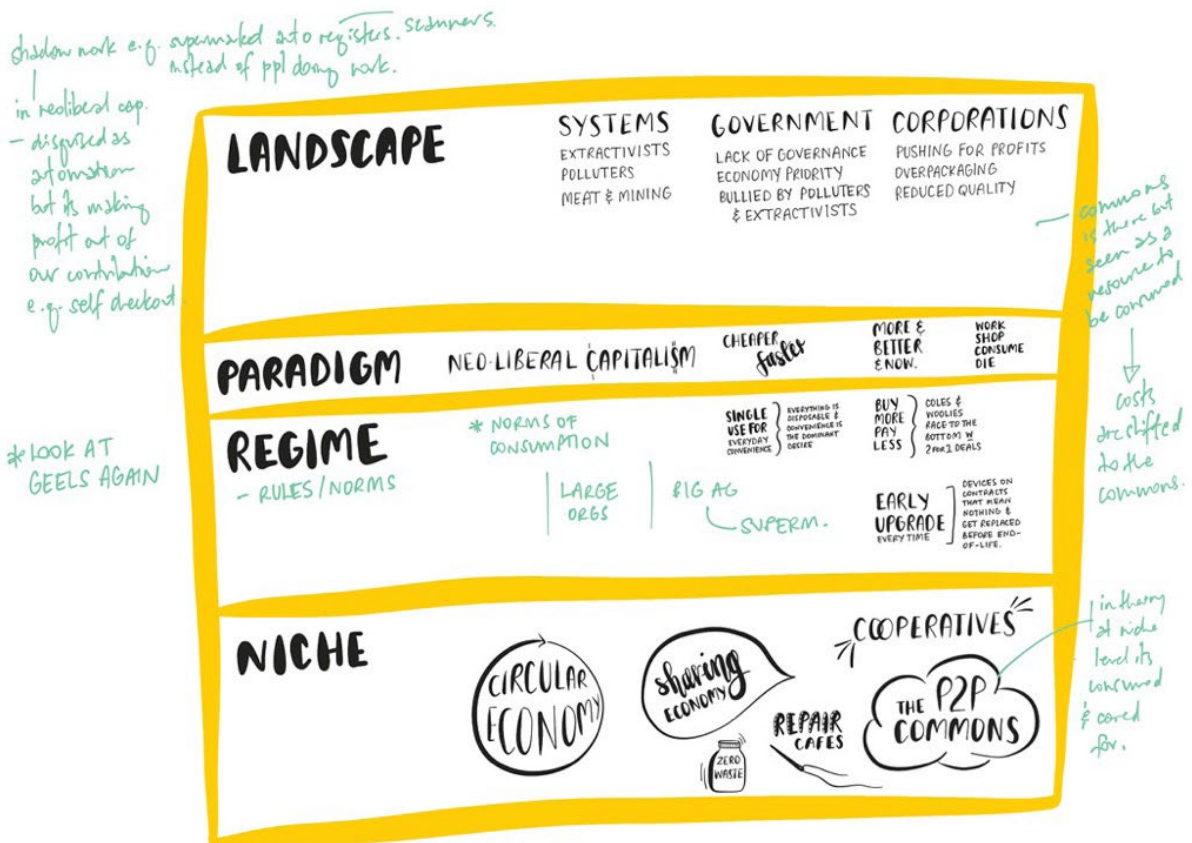 shadow work e.g. supermarket auto registers. scanners.
instead of ppl doing work.
in neoliberal cap.
- disguised as
automation
but its making
profit out of
our contribution
e.g. self checkout
LANDSCAPE
SYSTEMS
EXTRACTIVISTS
POLLUTERS
MEAT & MINING
GOVERNMENT
LACK OF GOVERNANCE
ECONOMY PRIORITY
BULLIED BY POLLUTERS
& EXTRACTIVISTS
CORPORATIONS
PUSHING FOR PROFITS
OVERPACKAGING
REDUCED QUALITY
- commons
is there but
seen as a
resource to
be consumed
costs
are shifted
to the
commons.
PARADIGM
NEO-LIBERAL CAPITALISM
CHEAPER
faster
MORE &
BETTER
& NOW.
WORK
SHOP
CONSUME
DIE
* LOOK AT
GEELS AGAIN
REGIME
- RULES/NORMS
* NORMS OF
CONSUMPTION
LARGE
ORGS
BIG AG
SUPERM.
SINGLE
USE FOR
EVERYDAY
CONVENIENCE
EVERYTHING IS
DISPOSABLE &
CONVENIENCE IS
THE DOMINANT
DESIRE
BUY
MORE
PAY
LESS
COLES &
WOOLIES
RACE TO THE
BOTTOM W
2 FOR 1 DEALS
EARLY
UPGRADE
EVERY TIME
DEVICES ON
CONTRACTS
THAT MEAN
NOTHING &
GET REPLACED
BEFORE END-
OF-LIFE.
NICHE
CIRCULAR
ECONOMY
sharing
ECONOMY
ZERO
WASTE
REPAIR
CAFES
COOPERATIVES
THE P2P
COMMONS
in theory
at niche
level its
consumed
& cared
for.